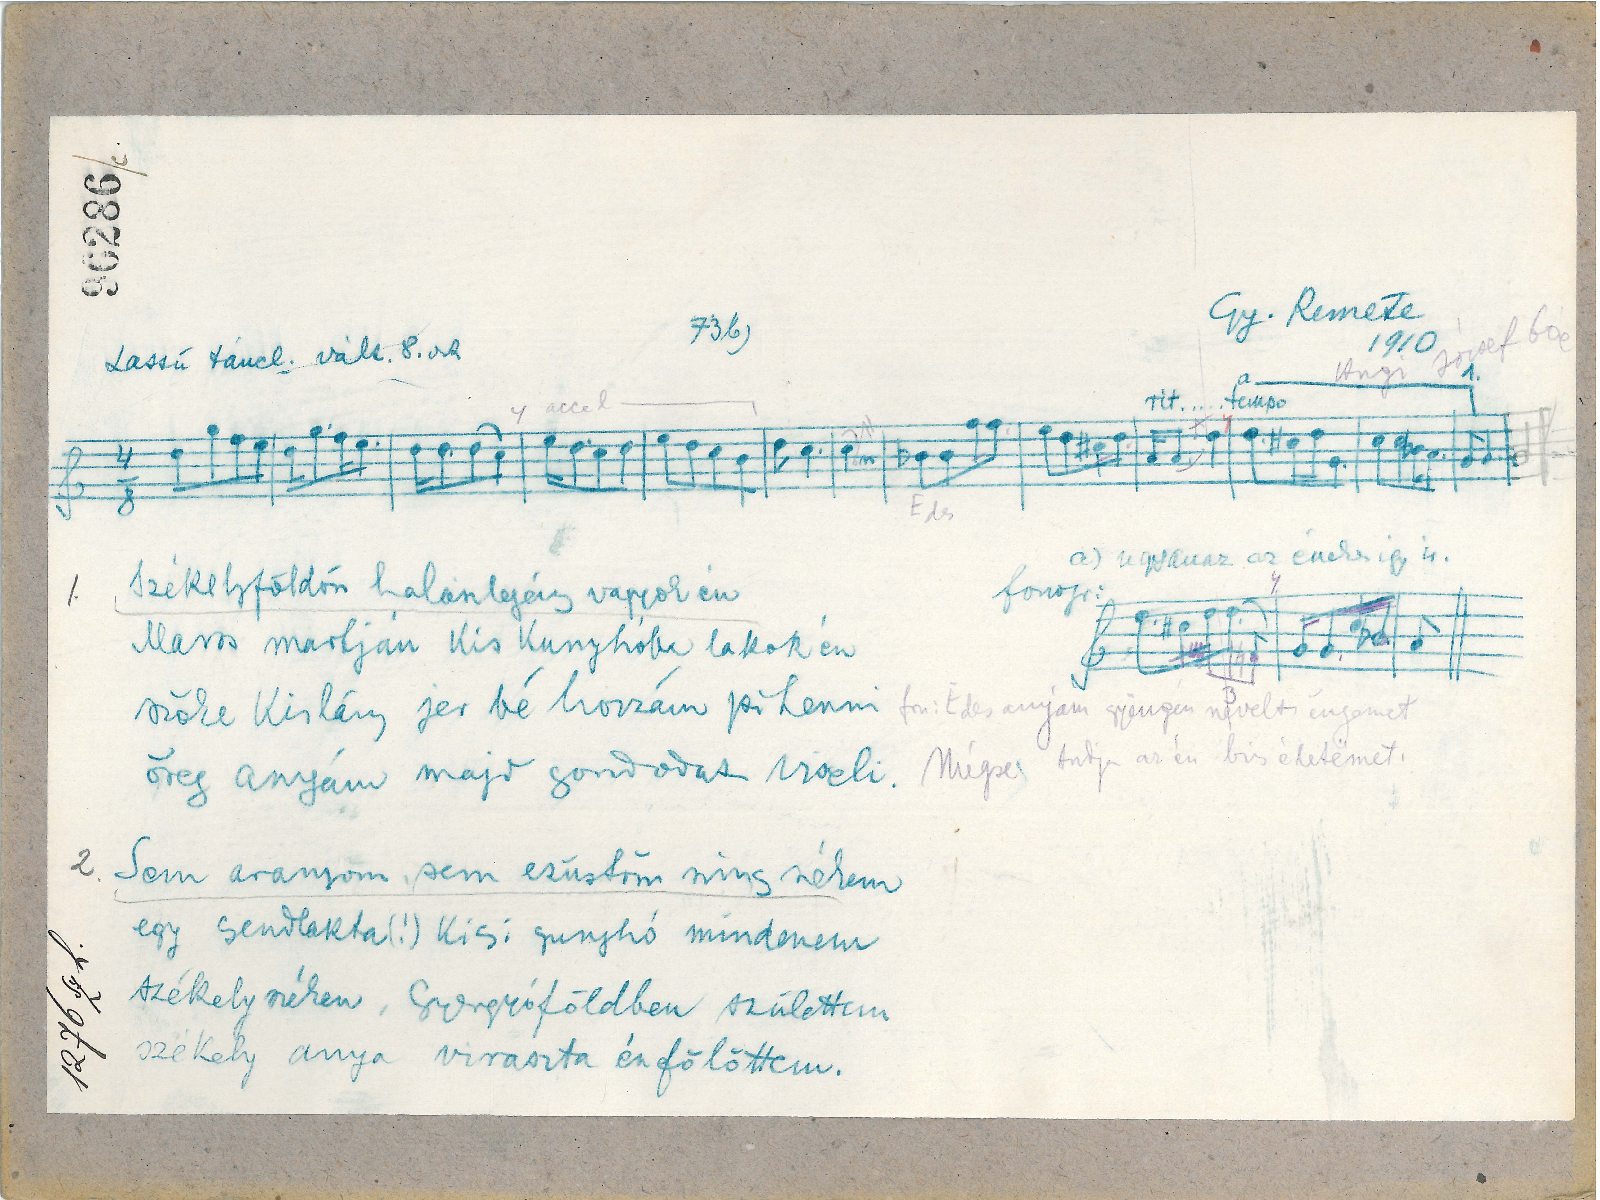 90286/c.
73b)
Gy. Remete
1910
Angi József 60é
Lassú táncl. vált. 8. ok
accel
rit..... a tempo
1.
4
8
Édes
a) ugyanaz az ének így is.
fonogr:
3
1. Székelyföldön halászlegény vagyok én
Maros martján Kis Kunyhóba lakok én
szőke Kislány jer bé hozzám pihenni
öreg anyám majd gondodat viseli.
fon: Édesanyám gyöngén nevelt éngemet
Mégse tudja az én bús életëmet.
2. Sem aranyom, sem ezüstöm nincs nékem
egy (!) Kis gunyhó mindenem
székely néken, Gyergyóföldben születtem
székely anya viraszta énfölöttem.
1276